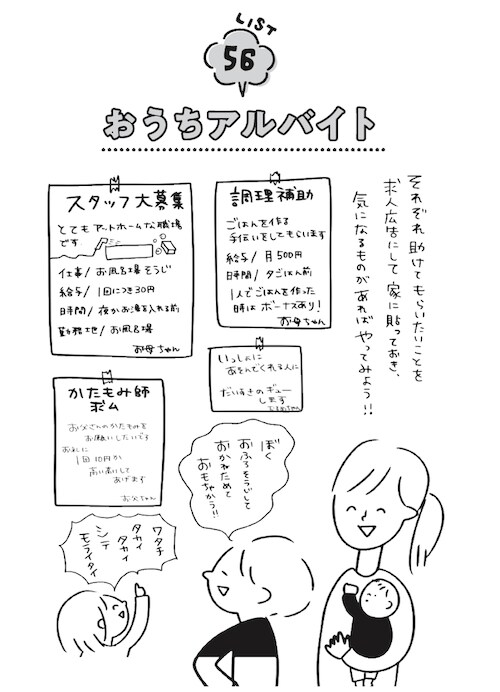 LIST
56
おうちアルバイト
それぞれ助けてもらいたいことを
求人広告にして家に貼っておき、
気になるものがあればやってみよう!!
スタッフ大募集
とてもアットホームな職場
です
仕事/お風呂場そうじ
給与/1回につき30円
時間/夜かお湯を入れる前
勤務地/お風呂場
お母ちゃん
調理補助
ごはんを作る
手伝いをしてもらいます
給与/月500円
時間/夕ごはん前
1人でごはんを作った
時はボーナスあり!
お母ちゃん
いっしょに
あそんでくれる人に
だいすきのギュー
します
かたもみ師
求ム
お父さんのかたもみを
お願いしたいです
お礼に
1回10円か
高い高いして
あげます
お父ちゃん
ぼく
おふろそうじして
おかねためて
おもちゃかう!!
ワタチ
タカイ
タカイ
シテ
モライタイ